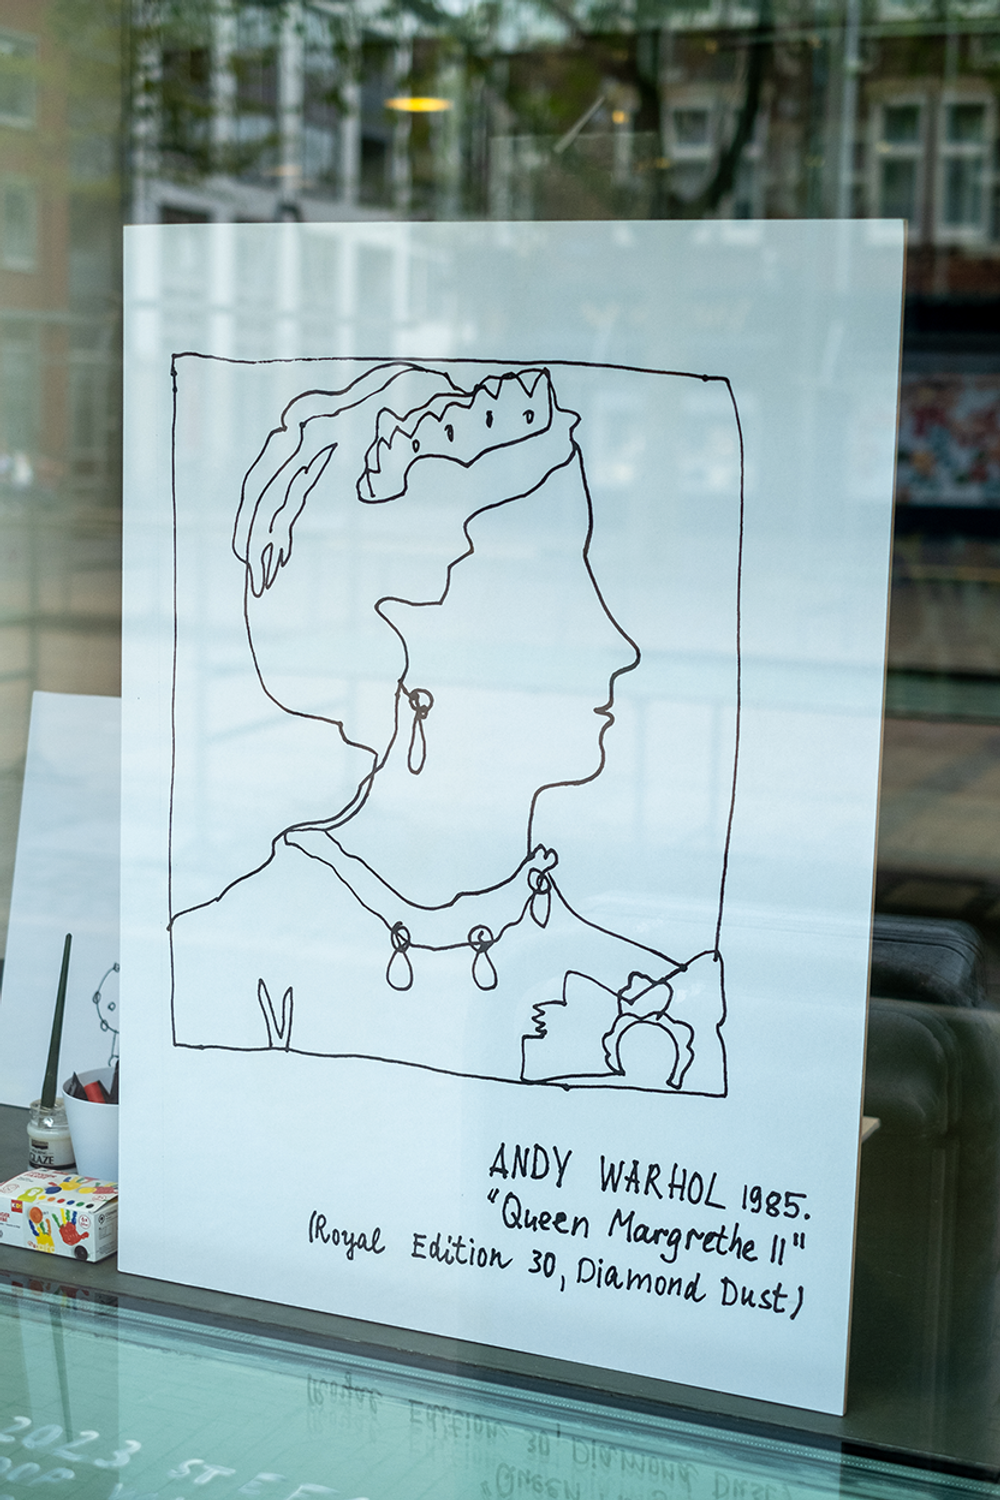 ANDY WARHOL 1985.
"Queen Margrethe II"
(Royal Edition 30, Diamond Dust)
GLAZE
2023 ST